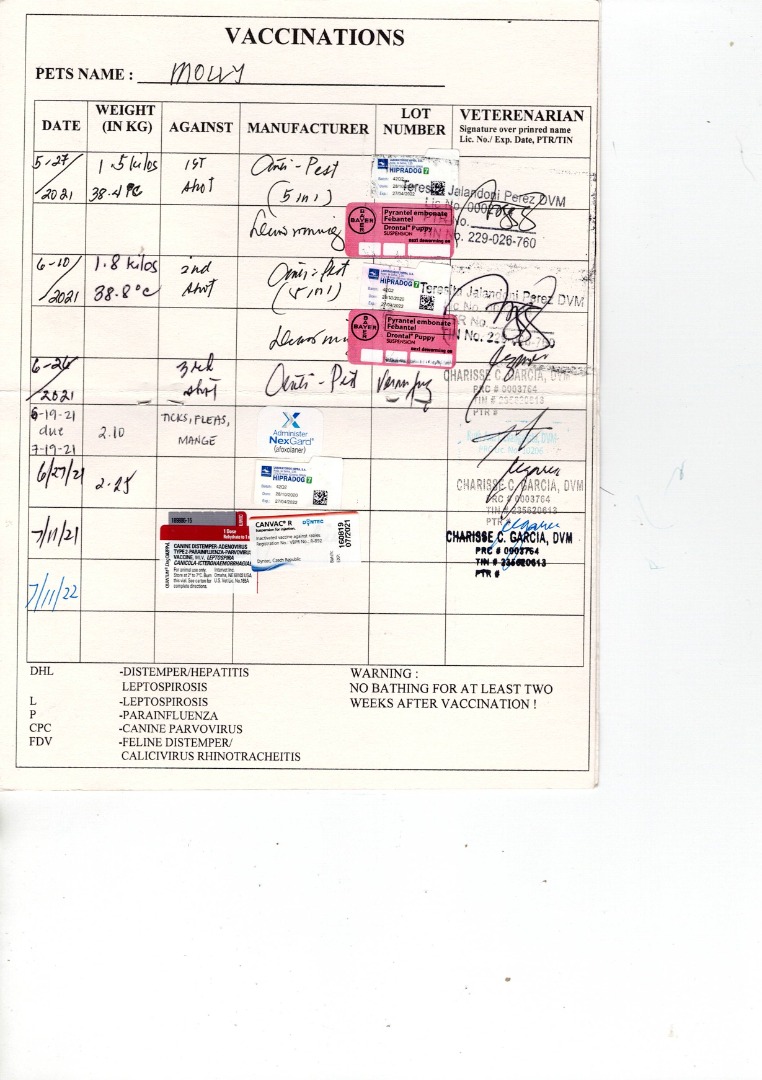 VACCINATIONS
PETS NAME : MOLLY
DATE
WEIGHT
(IN KG)
AGAINST
MANUFACTURER
LOT
NUMBER
VETERENARIAN
Signature over prinred name
Lic. No./ Exp. Date, PTR/TIN
5-27/2021
1.5 kilos
38.4 °C
1st
shot
Anti-Pest
(5 in 1)
Deworming
HIPRADOG 7
42G2
27/04/2022
BAYER
Pyrantel embonate
Febantel
Drontal® Puppy
SUSPENSION
next deworming on
Teresita Jalandoni Perez DVM
Lic No.
PTR No.
TIN No. 229-026-760
6-10/2021
1.8 kilos
38.8°C
2nd
shot
Anti-Pest
(5 in 1)
HIPRADOG 7
42G2
28/10/2020
27/04/2022
BAYER
Pyrantel embonate
Febantel
Drontal® Puppy
SUSPENSION
next deworming on
Teresita Jalandoni Perez DVM
Lic No.
PTR No.
TIN No.
6-26/2021
3rd
shot
Anti-Pest
CHARISSE C. GARCIA, DVM
PRC # 0003764
TIN # 235620613
PTR #
6-19-21
due
7-19-21
2.10
TICKS, FLEAS,
MANGE
Administer
NexGard®
(afoxolaner)
6/27/21
2.25
HIPRADOG 7
42G2
28/10/2020
27/04/2022
CHARISSE C. GARCIA, DVM
PRC # 0003764
TIN # 235620613
PTR #
7/11/21
1 Dose
CANINE DISTEMPER-ADENOVIRUS
TYPE 2-PARAINFLUENZA-PARVOVIRUS
VACCINE, MLV, LEPTOSPIRA
CANICOLA-ICTEROHAEMORRHAGIAE
For animal use only.
complete directions.
CANVAC® R
Suspension for injection
Inactivated vaccine against rabies
Dyntec, Czech Republic
DYNTEC
160819
07/2021
CHARISSE C. GARCIA, DVM
PRC # 0003764
TIN # 235620613
PTR #
7/11/22
DHL -DISTEMPER/HEPATITIS
LEPTOSPIROSIS
L -LEPTOSPIROSIS
P -PARAINFLUENZA
CPC -CANINE PARVOVIRUS
FDV -FELINE DISTEMPER/
CALICIVIRUS RHINOTRACHEITIS
WARNING :
NO BATHING FOR AT LEAST TWO
WEEKS AFTER VACCINATION !